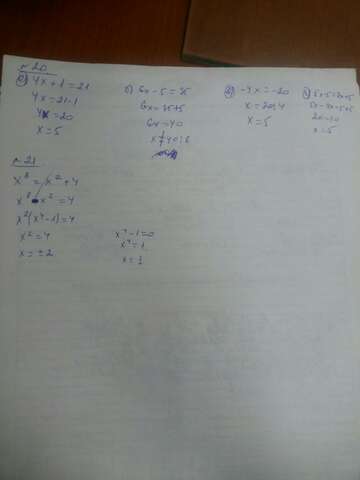 №20
а) 4x + 1 = 21
4x = 21-1
4x = 20
x = 5
б) 6x - 5 = 35
6x = 35+5
6x = 40
x ≠ 40:6
-4x = -20
x = 20:4
x = 5
2x = 10
x = 5
№21
x⁸ = x² + 4
x⁸ - x² = 4
x²(x⁴-1) = 4
x² = 4
x = ±2
x⁴-1=0
x⁴=1
x = 1